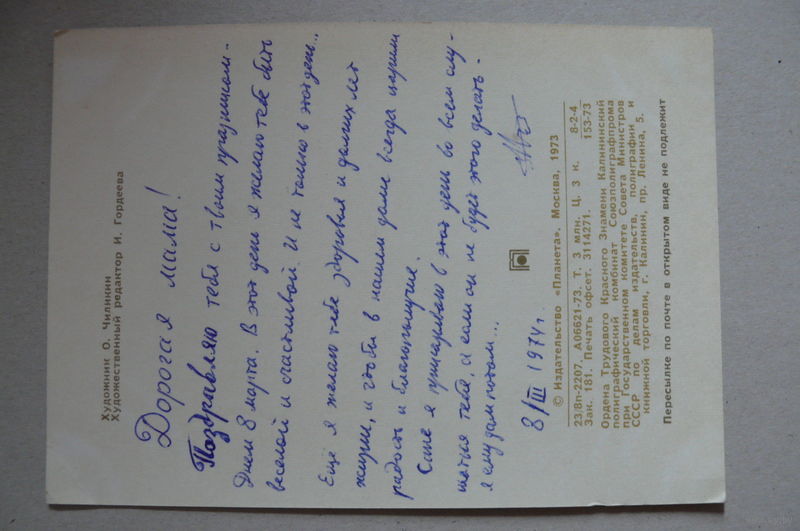 Художник О. Чиликин
Художественный редактор И. Гордеева
Дорогая мама!
Поздравляю тебя с твоим праздником -
Днем 8 марта. В этот день я желаю тебе быть
веселой и счастливой. И не только в этот день...
Ещё я желаю тебе здоровья и долгих лет
жизни, и чтобы в нашем доме всегда царили
радость и благополучие.
Саше я приказываю в этот день во всем слу-
шаться тебя, а если он не будет этого делать -
я ему дам потом...
8/III 1974 г.
© Издательство «Планета». Москва, 1973
23/8п-2207. А06621-73. Т. 3 млн. Ц. 3 к. 8-2-4
Зак. 181. Печать офсет. 3114271. 153-73
Ордена Трудового Красного Знамени Калининский
полиграфический комбинат Союзполиграфпрома
при Государственном комитете Совета Министров
СССР по делам издательств, полиграфии и
книжной торговли, г. Калинин, пр. Ленина, 5.
Пересылке по почте в открытом виде не подлежит